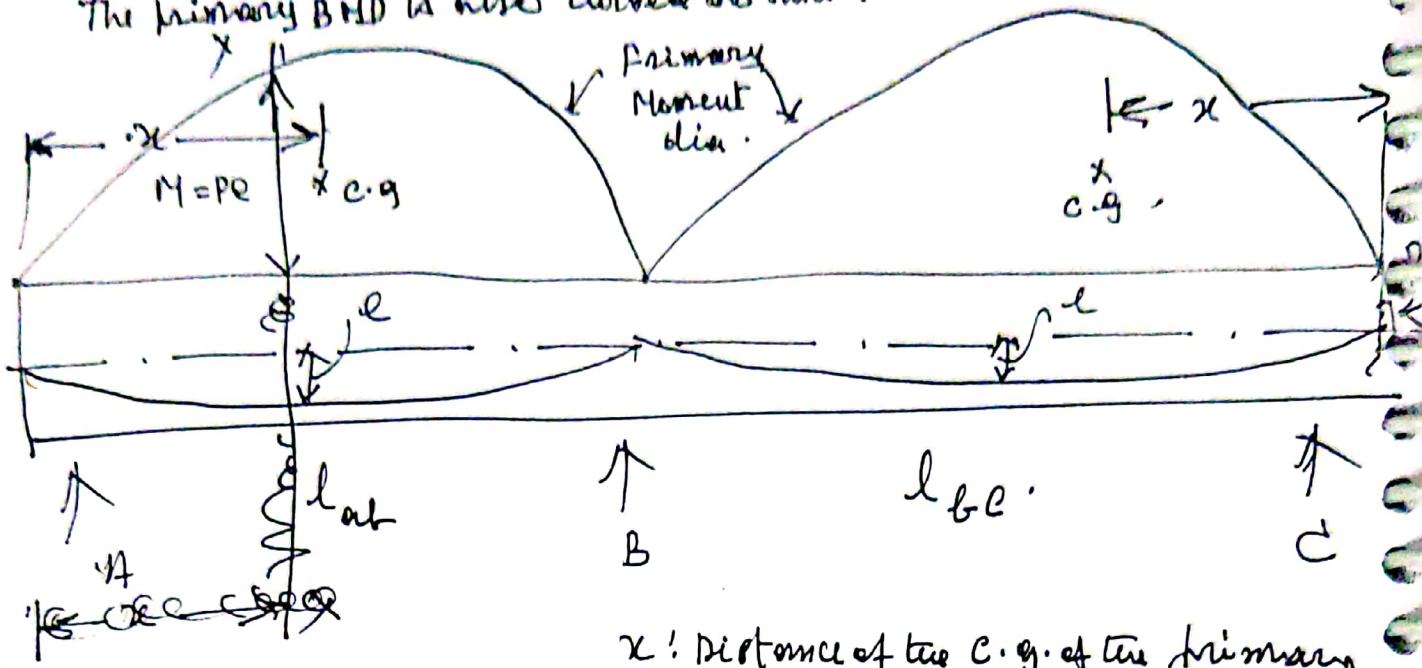 The primary BMD is
x
Primary
Moment
dia.
x
x
M = Pe
x c.g
x
c.g.
e
e
l ab
l bc.
A
B
C
x : Distance of the c.g. of the primary